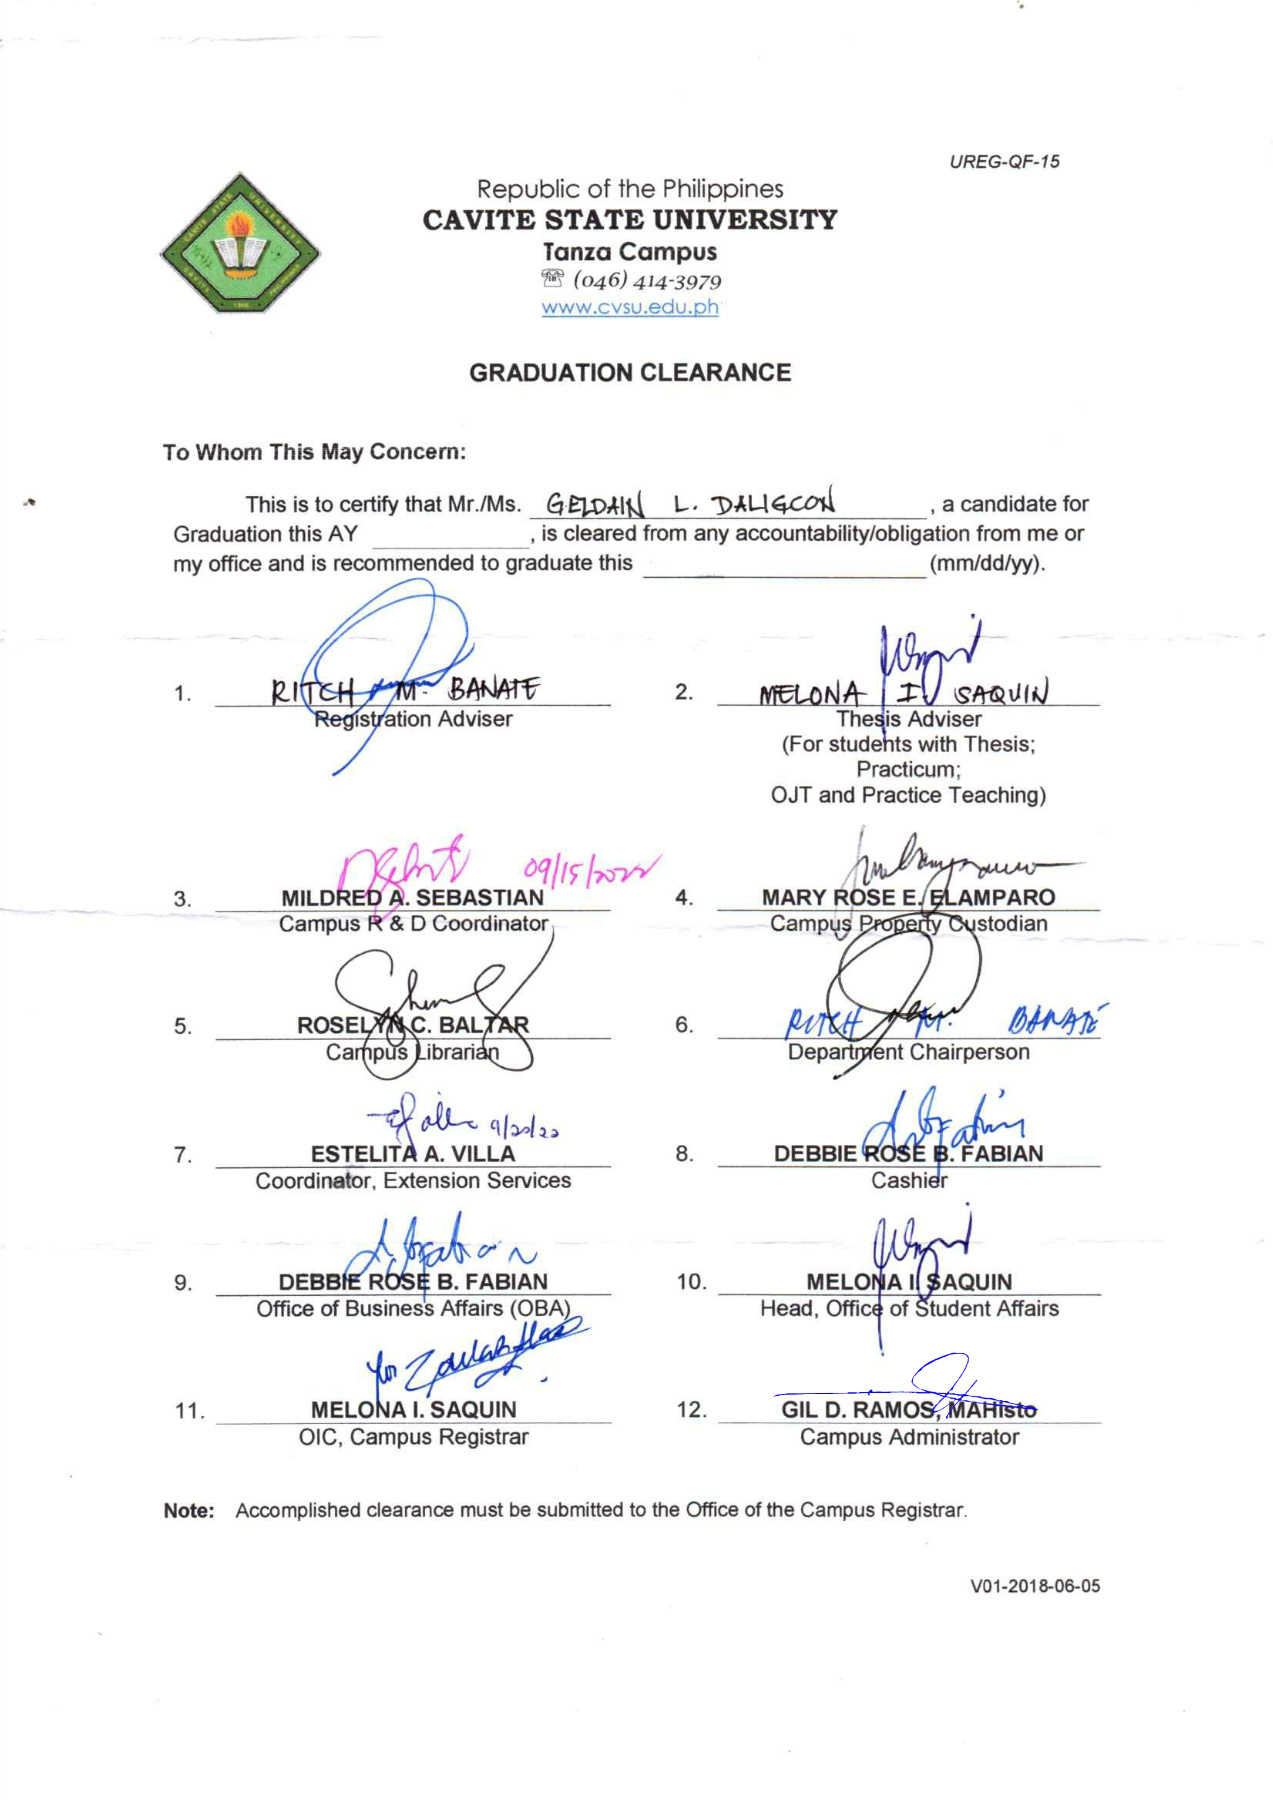 UREG-QF-15
Republic of the Philippines
CAVITE STATE UNIVERSITY
Tanza Campus
☏ (046) 414-3979
www.cvsu.edu.ph
GRADUATION CLEARANCE
To Whom This May Concern:
This is to certify that Mr./Ms. GELDAIN L. DALIGCON, a candidate for
Graduation this AY ______________, is cleared from any accountability/obligation from me or
my office and is recommended to graduate this ______________ (mm/dd/yy).
1. RITCH M. BANATE
Registration Adviser
2. MELONA I. SAQUIN
Thesis Adviser
(For students with Thesis;
Practicum;
OJT and Practice Teaching)
09/15/2022
3. MILDRED A. SEBASTIAN
Campus R & D Coordinator
4. MARY ROSE E. ELAMPARO
Campus Property Custodian
5. ROSELYN C. BALTAR
Campus Librarian
6. RITCH M. BANATE
Department Chairperson
9/20/22
7. ESTELITA A. VILLA
Coordinator, Extension Services
8. DEBBIE ROSE B. FABIAN
Cashier
9. DEBBIE ROSE B. FABIAN
Office of Business Affairs (OBA)
10. MELONA I. SAQUIN
Head, Office of Student Affairs
for
11. MELONA I. SAQUIN
OIC, Campus Registrar
12. GIL D. RAMOS, MAHisto
Campus Administrator
Note: Accomplished clearance must be submitted to the Office of the Campus Registrar.
V01-2018-06-05